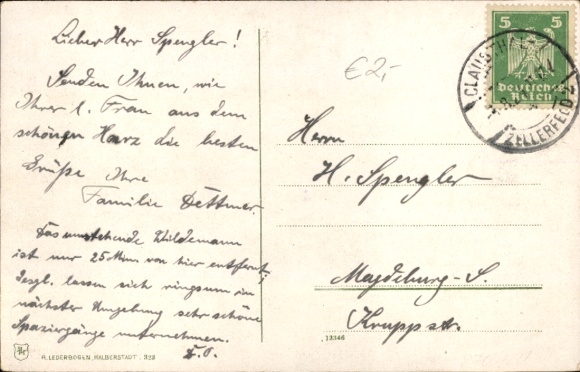 Lieber Herr Spengler!
Senden Ihnen, wie
Ihrer l. Frau aus dem
schönen Harz die besten
Grüße Ihre
Familie Dettmer.
Das umstehende Wildemann
ist nur 25 Min von hier entfernt;
desgl. lassen sich ringsum in
nächster Umgebung sehr schöne
Spaziergänge unternehmen.
D. O.
R. LEDERBOGEN, HALBERSTADT.
€2,-
5 5
Deutsches
Reich
CLAUSTHAL
ZELLERFELD
Herrn
H. Spengler
Magdeburg-S.
Kruppstr.
13346